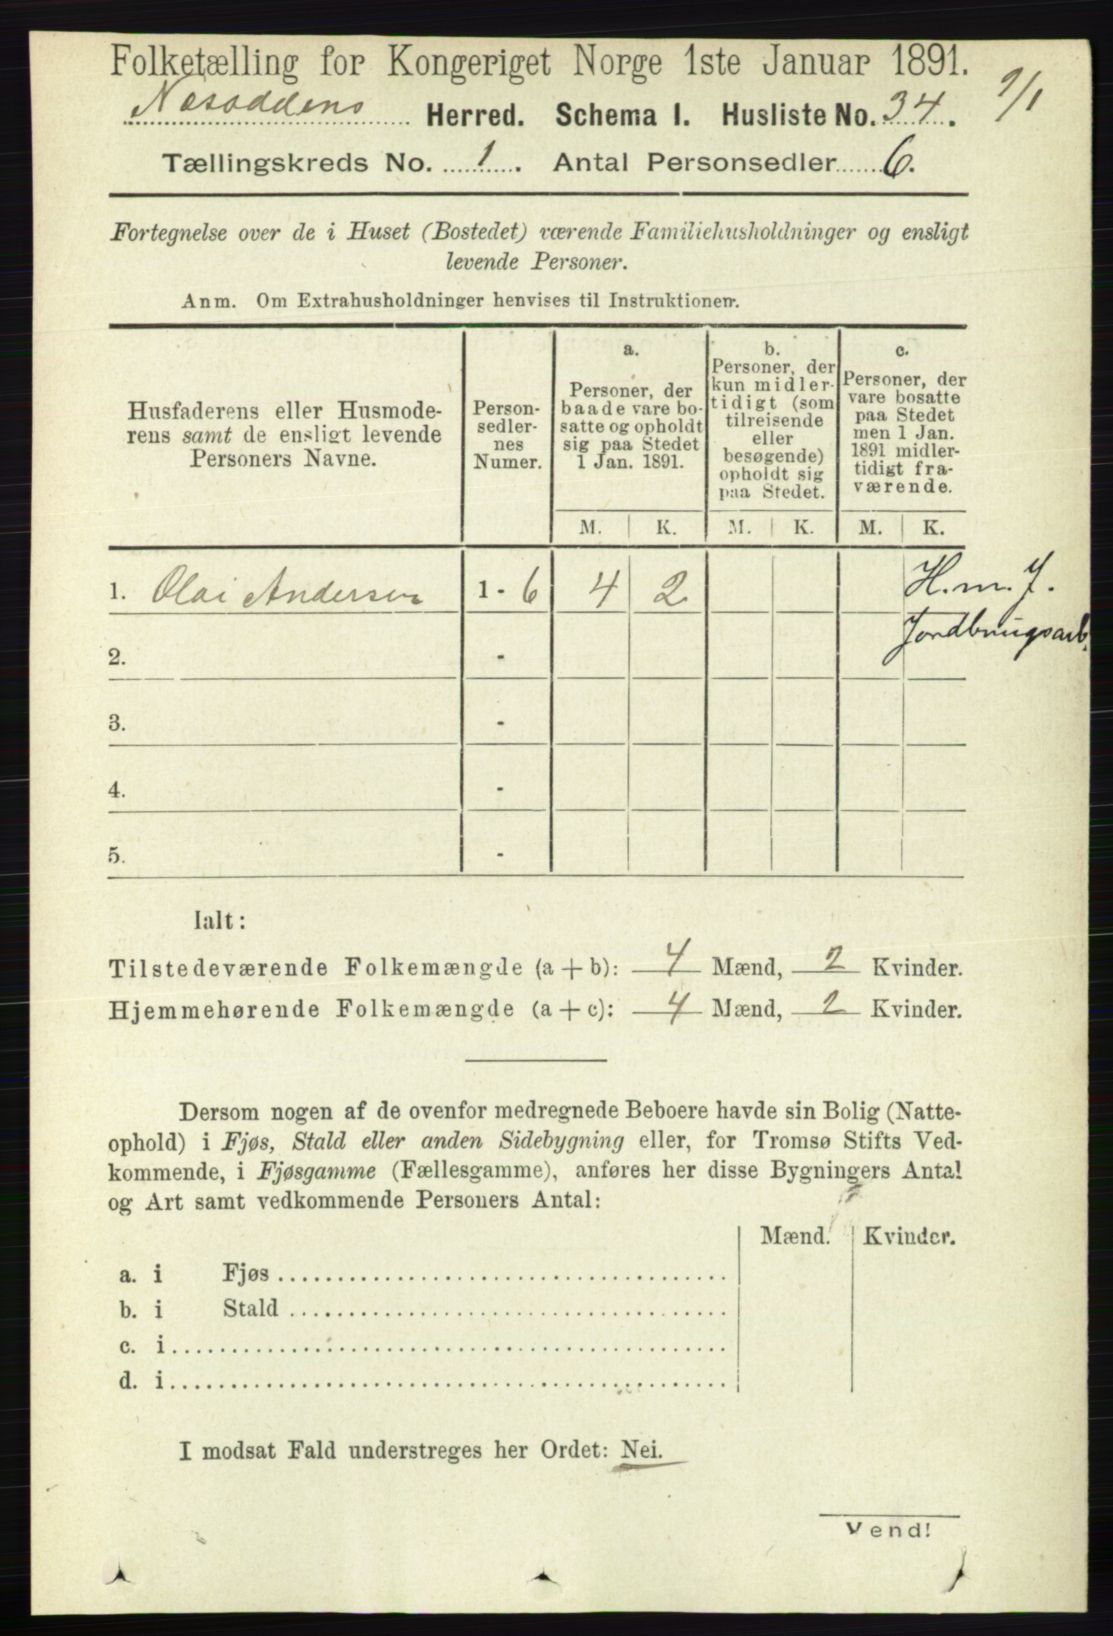 Folketælling for Kongeriget Norge 1ste Januar 1891.
9/1
Næsoddens Herred. Schema I. Husliste No. 34.
Tællingskreds No. 1. Antal Personsedler 6.
Fortegnelse over de i Huset (Bostedet) værende Familiehusholdninger og ensligt
levende Personer.
Anm. Om Extrahusholdninger henvises til Instruktionen.
Husfaderens eller Husmode-
rens samt de ensligt levende
Personers Navne.
Person-
sedler-
nes
Numer.
a.
Personer, der
baade vare bo-
satte og opholdt
sig paa Stedet
1 Jan. 1891.
b.
Personer, der
kun midler-
tidigt (som
tilreisende
eller
besøgende)
opholdt sig
paa Stedet.
c.
Personer, der
vare bosatte
paa Stedet
men 1 Jan.
1891 midler-
tidigt fra-
værende.
M. K. M. K. M. K.
1. Olai Andersen 1 - 6 4 2 H.m.J.
Jordbrugsarb.
2. -
3. -
4. -
5. -
Ialt:
Tilstedeværende Folkemængde (a + b): 4 Mænd, 2 Kvinder.
Hjemmehørende Folkemængde (a + c): 4 Mænd, 2 Kvinder.
Dersom nogen af de ovenfor medregnede Beboere havde sin Bolig (Natte-
ophold) i Fjøs, Stald eller anden Sidebygning eller, for Tromsø Stifts Ved-
kommende, i Fjøsgamme (Fællesgamme), anføres her disse Bygningers Antal
og Art samt vedkommende Personers Antal:
Mænd. Kvinder.
a. i Fjøs
b. i Stald
c. i
d. i
I modsat Fald understreges her Ordet: Nei.
Vend!